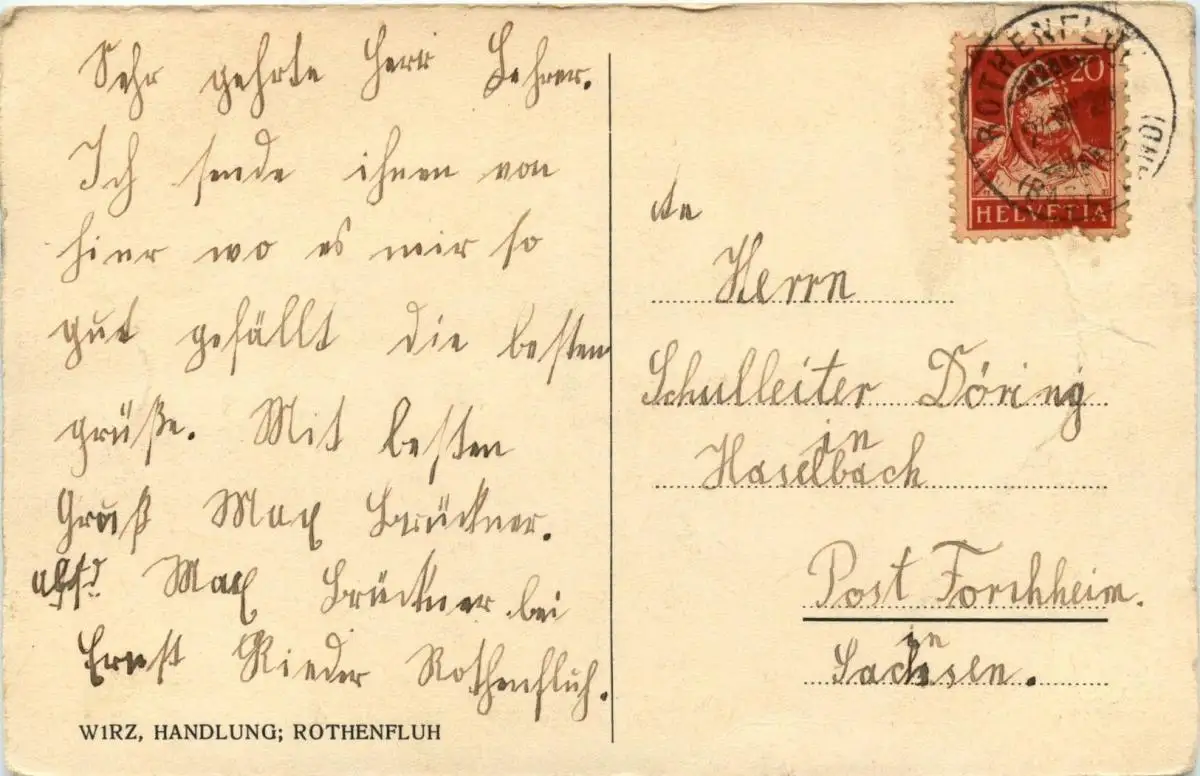 Sehr geehrte Herr Lehrer.
Ich sende ihnen von
hier wo es mir so
gut gefällt die besten
grüße. Mit besten
Gruß Max Brückner.
absd Max Brückner bei
Ernst Rieder Rothenfluh.
WIRZ, HANDLUNG; ROTHENFLUH
20
HELVETIA
ROTHENFLUH
An
Herrn
Schulleiter Döring
in
Haselbach
Post Forchheim.
in
Sachsen.